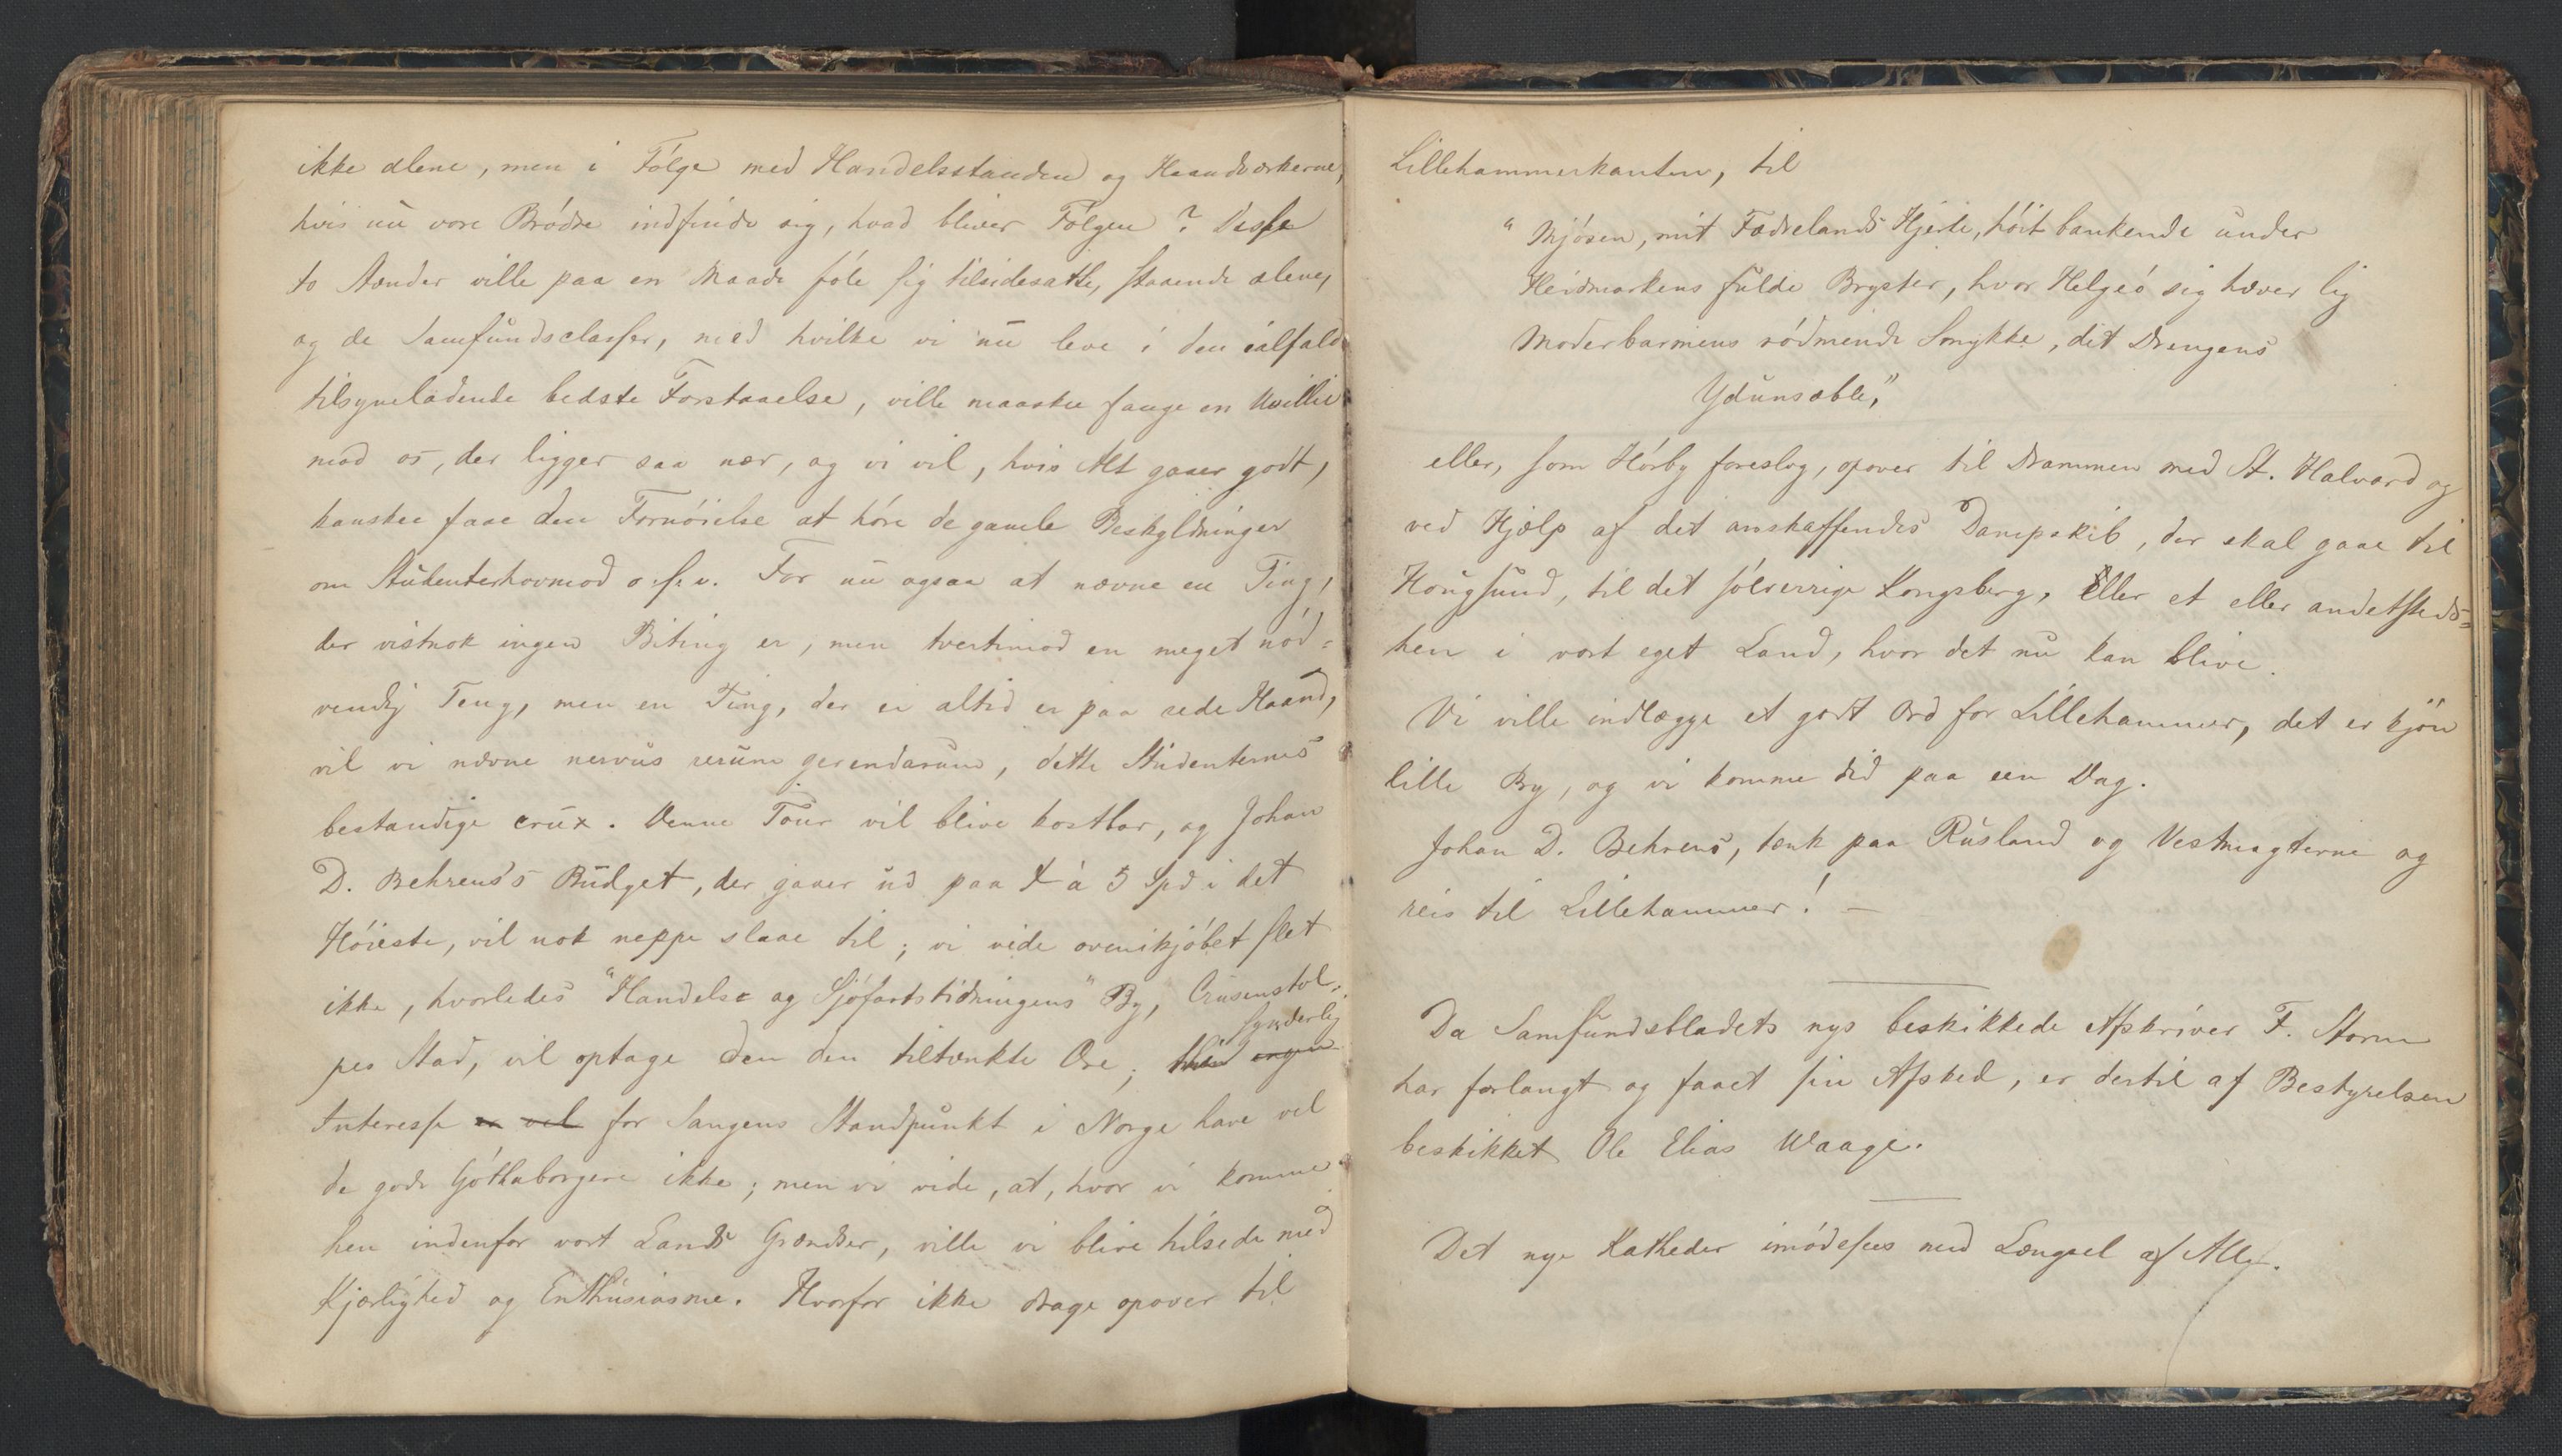 ikke alene, men i Følge med Handelsstanden og Haandværkerne,
hvis nu vore Brødre indfinde sig, hvad bliver Følgen? Disse
to Stænder ville paa en Maade føle sig tilsidesatte, staaende alene,
og de Samfundsclasser, med hvilke vi nu leve i den ialfald
tilsyneladende bedste Forstaaelse, ville maaskee fange en Uvillie
mod os, der ligger saa nær, og vi vil, hvis Alt gaaer godt,
kanskee faae den Fornøielse at høre de gamle Beskyldninger
om Studenterhovmod o.s.v. For nu ogsaa at nævne en Ting,
der vistnok ingen Biting er, men tvertimod en meget nød=
vendig Ting, men en Ting, der ei altid er paa rede Haand,
vil vi nævne nervus rerum gerendarum, dette Studenternes
bestandige crux. Denne Tour vil blive kostbar, og Johan
D. Behrens's Budget, der gaaer ud paa 4 à 5 Spd i det
Høieste, vil nok neppe slaae til; vi vide ovenikjøbet slet
ikke, hvorledes "Handels= og Sjøfartstidningens" By, Crusenstol=
pes Stad, vil optage den den tiltænkte Ære; synderlig
Interesse er vel for Sangens Standpunkt i Norge have vel
de gode Gøthaborgere ikke; men vi vide, at, hvor vi komme
hen indenfor vort Lands Grændser, ville vi blive hilsede med
Kjærlighed og Enthusiasme. Hvorfor ikke drage opover til
Lillehammerkanten, til
"Mjøsen, mit Fædrelands Hjerte, høit bankende under
Heidmarkens fulde Bryster, hvor Helgeø sig hæver lig
Moderbarmens rødmende Smykke, dit Drengens
Ydunsæble,"
eller, som Hørby foreslog, opover til Drammen med St. Halvard og
ved Hjælp af det anskaffendes Dampskib, der skal gaae til
Hougsund, til det sølverrige Kongsberg, eller et eller andetsteds=
hen i vort eget Land, hvor det nu kan blive.
Vi ville indlægge et godt Ord for Lillehammer, det er kjøn
lille By, og vi komme did paa een Dag.
Johan D. Behrens, tænk paa Rusland og Vestmagterne og
reis til Lillehammer! —
Da Samfundsbladets nys beskikkede Afskriver F. Storm
har forlangt og faaet sin Afsked, er dertil af Bestyrelsen
beskikket Ole Elias Waage.
Det nye Katheder imødesees med Længsel af Alle.